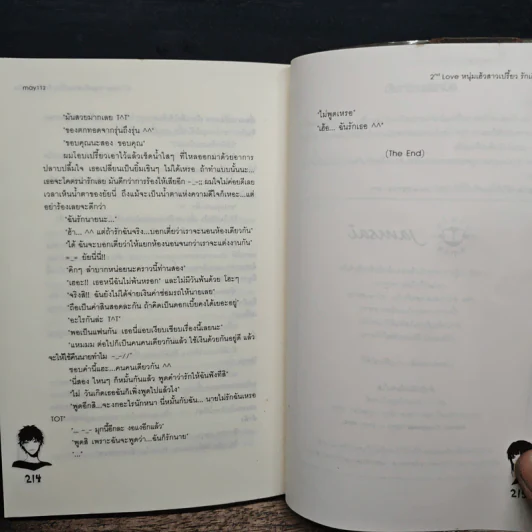 may112
"มันสวยมากเลย T^T"
"ของตกทอดจากรุ่นถึงรุ่น ^^"
"ขอบคุณนะสอง ขอบคุณ"
ผมโอบเปรี้ยวเอาไว้แล้วเช็ดน้ำใสๆ ที่ไหลออกมาด้วยอาการ
ปลาบปลื้มใจ เธอเปลี่ยนเป็นยิ้มเขินๆ ไม่ได้เหรอ ถ้าทำแบบนั้นนะ...
เธอจะโคตรน่ารักเลย มันดีกว่าการร้องไห้เสียอีก -_-;; ผมใจไม่ค่อยดีเลย
เวลาเห็นน้ำตาของยัยนี่ ถึงแม้จะเป็นน้ำตาแห่งความดีใจก็เหอะ...แต่
อย่าร้องเลยจะดีกว่า
"ฉันรักนายนะ..."
"ฮ้า... ^^ แต่ถ้ารักฉันจริง...บอกเดี่ยวว่าเราจะนอนห้องเดียวกัน"
"ได้ ฉันจะบอกเดี่ยวว่าให้แยกห้องนอนจนกว่าเราจะแต่งงานกัน"
=_= ยัยนี่นี่!!
"คิกๆ ลำบากหน่อยนะคราวนี้ท่านสอง"
"เธอะ!! เธอหนีฉันไม่พ้นหรอก" และไม่มีวันพ้นด้วย โฮะๆ
"จริงสิ!! ฉันยังไม่ได้จ่ายเงินค่าซ่อมรถให้นายเลย"
"ถือเป็นค่าสินสอดละกัน ถ้าคิดเป็นดอกเบี้ยคงได้เยอะอยู่"
"อะไรกันล่ะ T^T"
"พอเป็นแฟนกัน เธอนี่แอบเงียบเชียบเรื่องนี้เลยนะ"
"แหมมม ต่อไปก็เป็นคนคนเดียวกันแล้ว ใช้เงินด้วยกันอยู่ดี แล้ว
จะให้ใช้คืนนายทำไม -_-//"
ชอบคำนี้แฮะ...คนคนเดียวกัน ^^
"นี่สอง ไหนๆ ก็หมั้นกันแล้ว พูดคำว่ารักให้ฉันฟังทีสิ"
"ไม่ วันเกิดเธอฉันก็เพิ่งพูดไปแล้วไง"
"พูดอีกสิ...จะงกอะไรนักหนา นี่หมั้นกันนะ... นายไม่รักฉันเหรอ
TOT"
"... -_- มุกนี้อีกละ งอแงอีกแล้ว"
"พูดสิ เพราะฉันจะพูดว่า...ฉันก็รักนาย"
"..."
214
2nd Love หนุ่มเฮ้วสาวเปรี้ยว
"ไม่พูดเหรอ"
"เฮ้อ... ฉันรักเธอ ^^"
(The End)